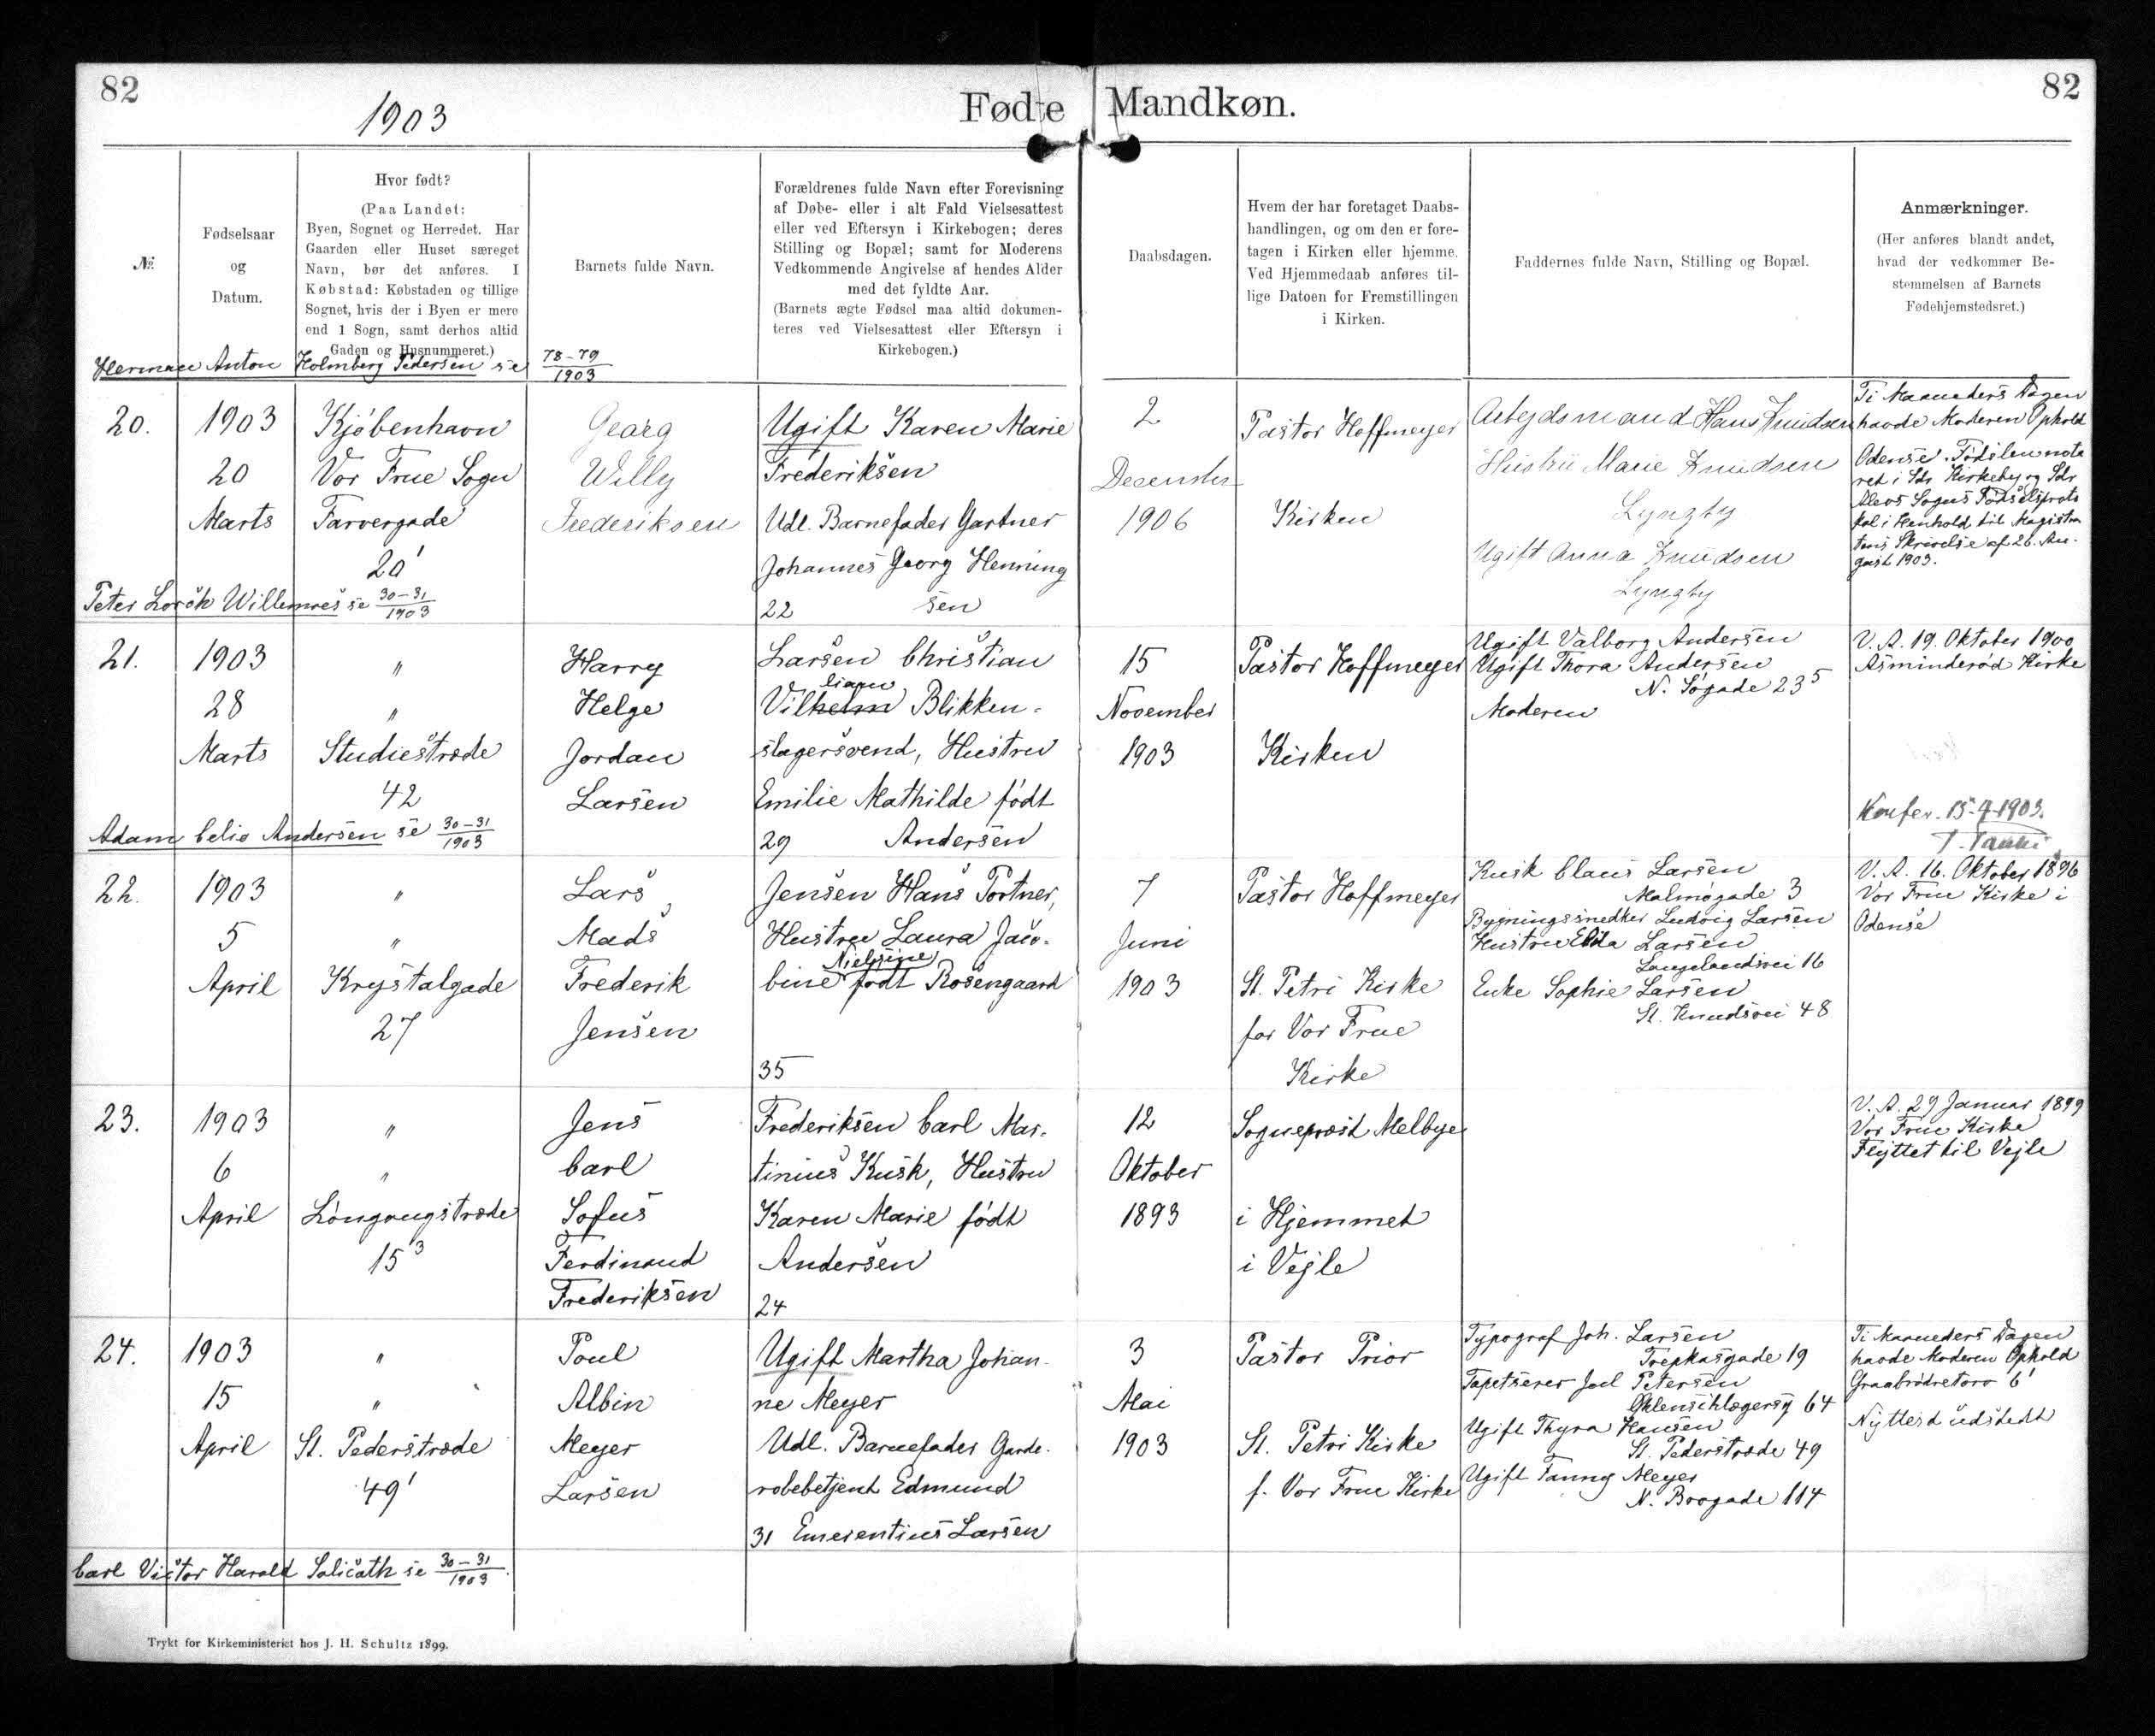 82
1903
Fødte Mandkøn.
82
№
Fødselsaar
og
Datum.
Hvor født?
(Paa Landet:
Byen, Sognet og Herredet. Har
Gaarden eller Huset særeget
Navn, bør det anføres. I
Købstad: Købstaden og tillige
Sognet, hvis der i Byen er mere
end 1 Sogn, samt derhos altid
Gaden og Husnummeret.)
Barnets fulde Navn.
Forældrenes fulde Navn efter Forevisning
af Døbe- eller i alt Fald Vielsesattest
eller ved Eftersyn i Kirkebogen; deres
Stilling og Bopæl; samt for Moderens
Vedkommende Angivelse af hendes Alder
med det fyldte Aar.
(Barnets ægte Fødsel maa altid dokumen-
teres ved Vielsesattest eller Eftersyn i
Kirkebogen.)
Daabsdagen.
Hvem der har foretaget Daabs-
handlingen, og om den er fore-
tagen i Kirken eller hjemme.
Ved Hjemmedaab anføres til-
lige Datoen for Fremstillingen
i Kirken.
Faddernes fulde Navn, Stilling og Bopæl.
Anmærkninger.
(Her anføres blandt andet,
hvad der vedkommer Be-
stemmelsen af Barnets
Fødehjemstedsret.)
Herman Anton Holmberg Pedersen se 78-79
1903
20.
1903
20
Marts
Kjøbenhavn
Vor Frue Sogn
Farvergade
20¹
Georg
Willy
Frederiksen
Ugift Karen Marie
Frederiksen
Udl. Barnefader Gartner
Johannes Georg Henning
22 sen
2
December
1906
Pastor Hoffmeyer
Kirken
Arbejdsmand Hans Knudsen
Hustru Marie Knudsen
Lyngby
Ugift Anna Knudsen
Lyngby
Ti Maaneders Dagen
havde Moderen Ophold
Odense. Fødslen note
ret i Sdr Kirkeby og Sdr
Alevs Sogns Fødselsproto
kol i Henhold til Magistra
tens Skrivelse af 26. Au-
gust 1903.
Peter Willemoes se 30-31
1903
21.
1903
28
Marts
"
"
Studiestræde
42
Harry
Helge
Jordan
Larsen
Larsen Christian
liam
Vilhelm Blikken-
slagersvend, Hustru
Emilie Mathilde født
29 Andersen
15
November
1903
Pastor Hoffmeyer
Kirken
Ugift Valborg Andersen
Ugift Thora Andersen
N. Søgade 23⁵
Moderen
V. A. 19. Oktober 1900
Asminderød Kirke
Adam Celio Andersen se 30-31
1903
22.
1903
5
April
"
"
Krystalgade
27
Lars
Mads
Frederik
Jensen
Jensen Hans Portner,
Hustru Laura Jaco-
Nielsine
bine født Rosengaard
35
7
Juni
1903
Pastor Hoffmeyer
St. Petri Kirke
for Vor Frue
Kirke
Kusk Claus Larsen
Malmøgade 3
Bygningssnedker Ludvig Larsen
Hustru Larsen
Langelandsvei 16
Enke Sophie Larsen
St. Knudsvei 48
V. A. 16. Oktober 1896
Vor Frue Kirke i
Odense
23.
1903
6
April
"
"
Løngangstræde
15³
Jens
Carl
Sofus
Ferdinand
Frederiksen
Frederiksen Carl Mar-
tinius Kusk, Hustru
Karen Marie født
Andersen
24
12
Oktober
1893
Sognepræst Melbye
i Hjemmet
i Vejle
V. A. 29 Januar 1899
Vor Frue Kirke
Flyttet til Vejle
24.
1903
15
April
"
"
St. Pederstræde
49¹
Poul
Albin
Meyer
Larsen
Ugift Martha Johan-
ne Meyer
Udl. Barnefader Garde-
robebetjent Edmund
31 Emerentius Larsen
3
Mai
1903
Pastor Prior
St. Petri Kirke
f. Vor Frue Kirke
Typograf Joh. Larsen
Trepkasgade 19
Tapetserer Joel Petersen
Øhlenschlægersg 64
Ugift Thyra Hansen
St. Pederstræde 49
Ugift Fanny Meyer
N. Brogade 114
Ti Maaneders Dagen
havde Moderen Ophold
Graabrødretorv 6¹
Carl Victor Harald Salicath se 30-31
1903
Trykt for Kirkeministeriet hos J. H. Schultz 1899.